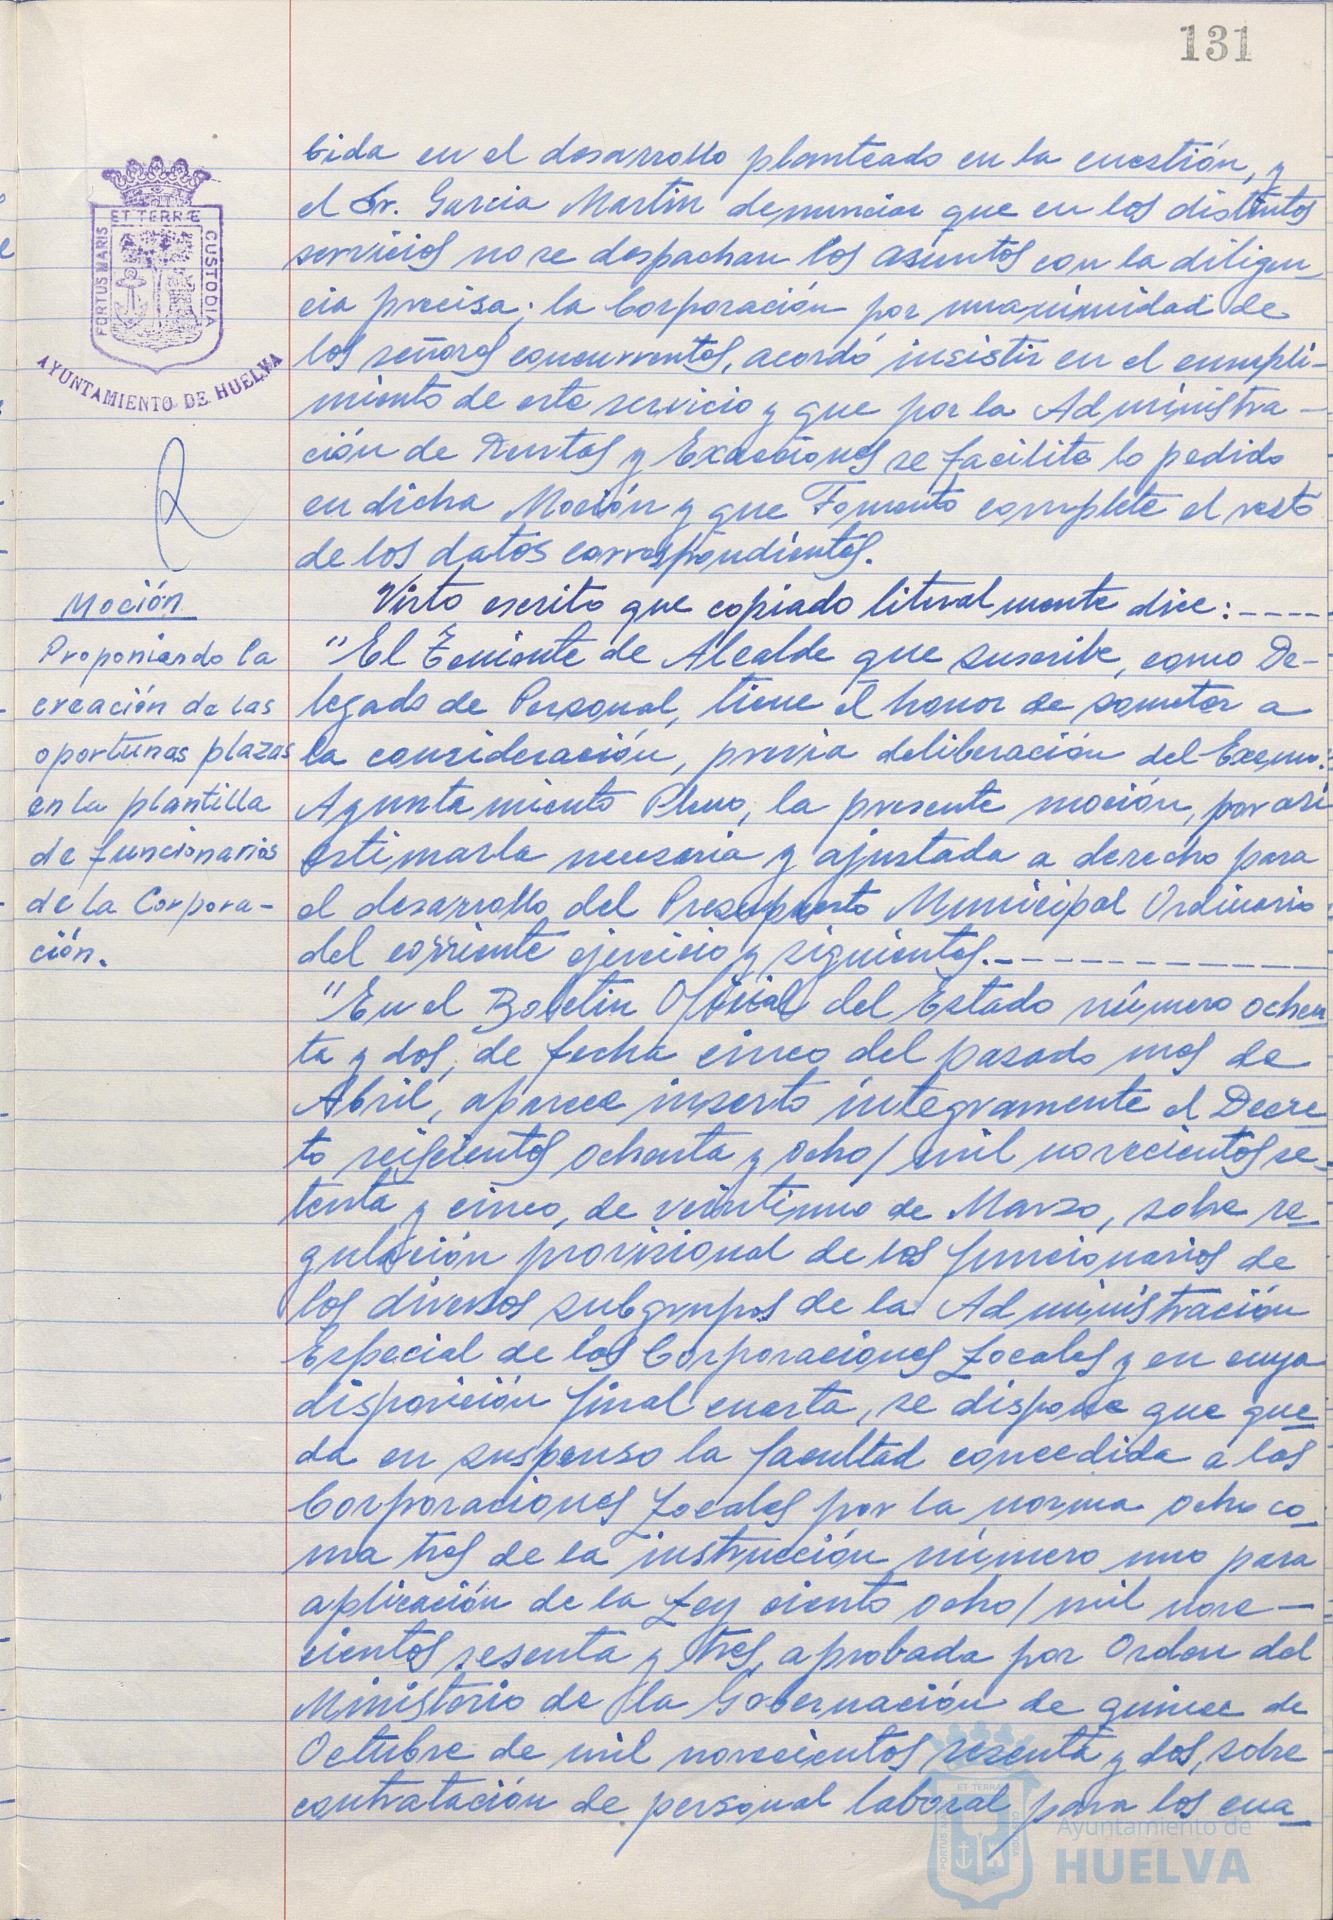 131
bida en el desarrollo planteado en la cuestión, y
el Sr. Garcia Martin denunciar que en los distintos
servicios no se despachan los asuntos con la diligen
cia precisa; la Corporación por unanimidad de
los señores concurrentes, acordó insistir en el cumpli-
miento de este servicio y que por la Administra-
ción de Rentas y Exacciones se facilite lo pedido
en dicha Moción y que Fomento complete el resto
de los datos correspondientes.
PORTUS MARIS ET TERRÆ CUSTODIA
AYUNTAMIENTO DE HUELVA
Moción
Proponiendo la
creación de las
oportunas plazas
en la plantilla
de funcionarios
de la Corpora-
ción.
Visto escrito que copiado literalmente dice:----
"El Teniente de Alcalde que suscribe, como De-
legado de Personal, tiene el honor de someter a
la consideración, previa deliberación del Excmo.
Ayuntamiento Pleno, la presente moción, por asi
estimarla necesaria y ajustada a derecho para
el desarrollo del Presupuesto Municipal Ordinario
del corriente ejercicio y siguientes.-------------
"En el Boletin Oficial del Estado número ochen
ta y dos, de fecha cinco del pasado mes de
Abril, aparece inserto íntegramente el Decre
to seiscientos ochenta y ocho/mil novecientos se-
tenta y cinco, de veintiuno de Marzo, sobre re
gulación provisional de los funcionarios de
los diversos subgrupos de la Administración
Especial de las Corporaciones Locales y en cuya
disposición final cuarta, se dispone que que
da en suspenso la facultad concedida a las
Corporaciones Locales por la norma ocho co
ma tres de la instrucción número uno para
aplicación de la Ley ciento ocho/mil nove-
cientos sesenta y tres, aprobada por Orden del
Ministerio de la Gobernación de quince de
Octubre de mil novecientos sesenta y dos, sobre
contratación de personal laboral para los cua
Ayuntamiento de
HUELVA